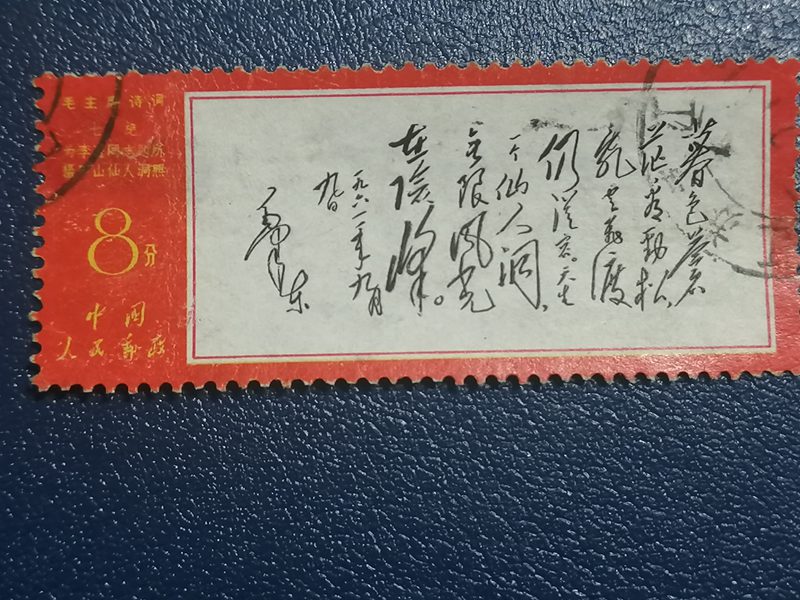 毛主席诗词
七绝
为李进同志题所
摄庐山仙人洞照
8分
中国
人民邮政
暮色蒼
茫看勁松,
亂云飛渡
仍從容。天生
一个仙人洞,
无限風光
在險峰。
一九六一年九月
九日
毛泽东